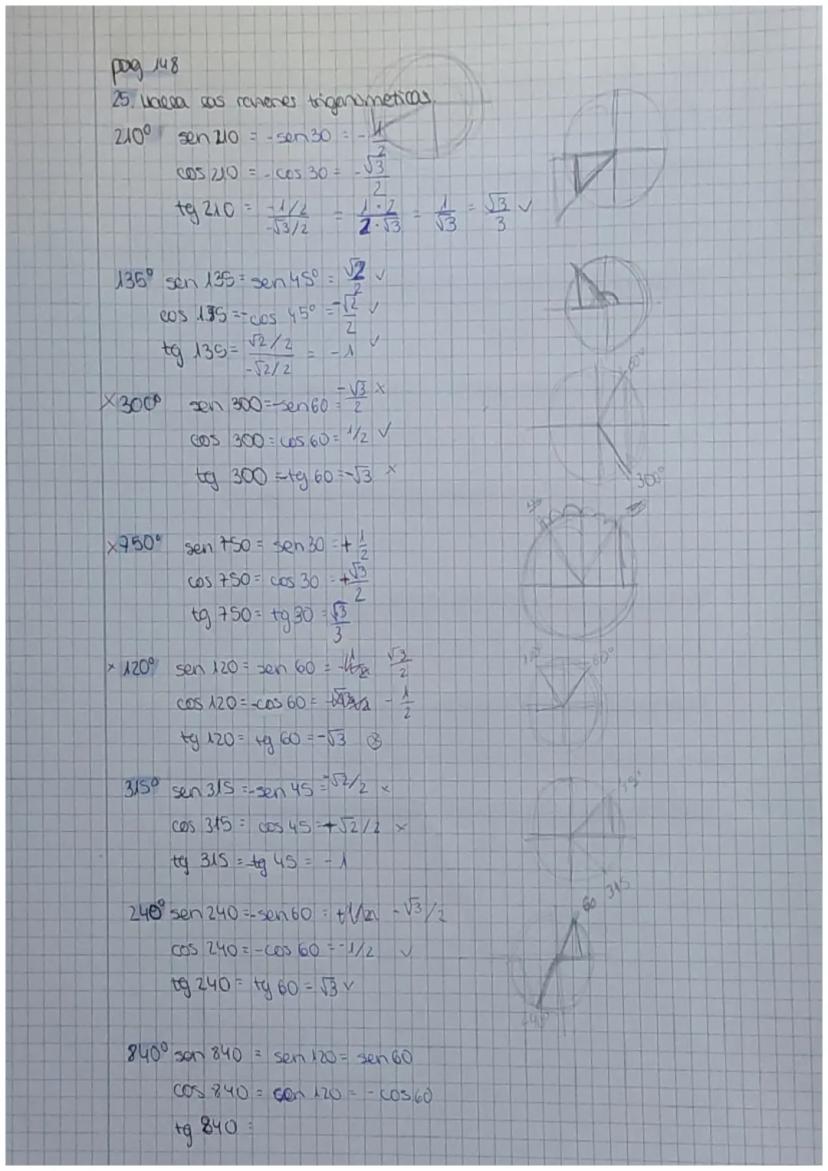 pag 148
25. las razones trigonometricas.
210° sen 210 = -sen 30 = -1/2
cos 210 = -cos 30 = -√3/2
tg 210 = (-1/2)/(-√3/2) = (1·2)/(2·√3) = 1/√3 = √3/3 ✓
135° sen 135 = sen 45° = √2/2 ✓
cos 135 = -cos 45° = -√2/2 ✓
tg 135 = (√2/2)/(-√2/2) = -1 ✓
x 300° sen 300 = -sen 60 = -√3/2 x
cos 300 = cos 60 = 1/2 ✓
tg 300 = -tg 60 = -√3 x
300°
x 750° sen 750 = sen 30 = +1/2
cos 750 = cos 30 = +√3/2
tg 750 = tg 30 = √3/3
x 120° sen 120 = sen 60 = √3/2
60°
cos 120 = -cos 60 = -1/2
tg 120 = tg 60 = -√3
315° sen 315 = -sen 45 = -√2/2 x
cos 315 = cos 45 = +√2/2 x
tg 315 = tg 45 = -1
315
240° sen 240 = -sen 60 = -√3/2
60
cos 240 = -cos 60 = -1/2 ✓
tg 240 = tg 60 = √3 ✓
240
840° sen 840 = sen 120 = sen 60
cos 840 = sen 120 = -cos 60
tg 840 =